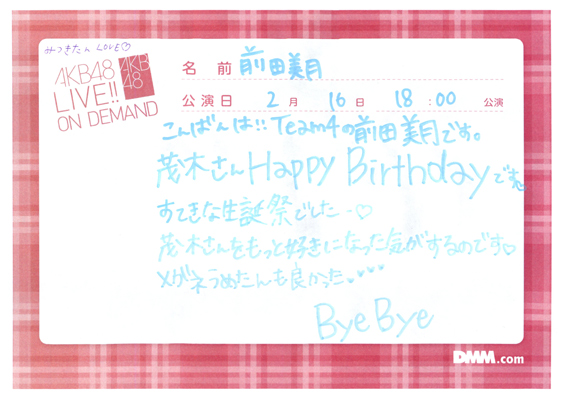 みつきたん LOVE♡
AKB48
LIVE!!
ON DEMAND
AKB
48
名 前 前田美月
公演日 2月 16日 18:00 公演
こんばんは!! Team4の前田美月です。
茂木さんHappy Birthdayです。
すてきな生誕祭でした-♡
茂木さんをもっと好きになった気がするのです♡
メガネうめたんも良かった♥♥♥♥
Bye Bye
DMM.com